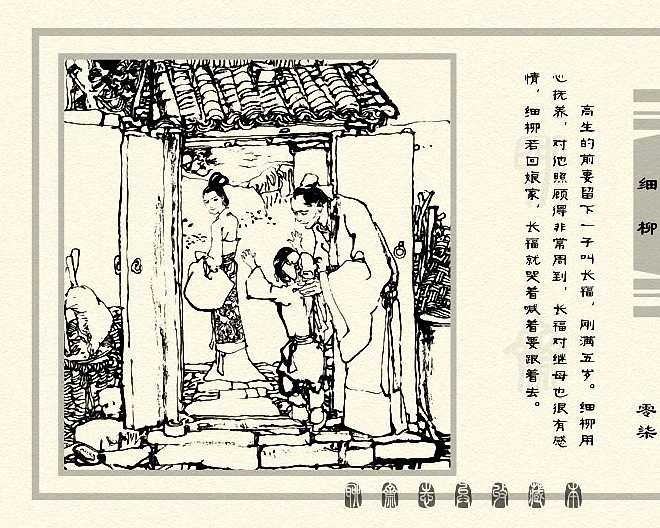 高生的前妻留下一子叫长福，刚满五岁。细柳用
心抚养，对他照顾得非常周到，长福对继母也很有感
情，细柳若回娘家，长福就哭着喊着要跟着去。
细柳
零柒